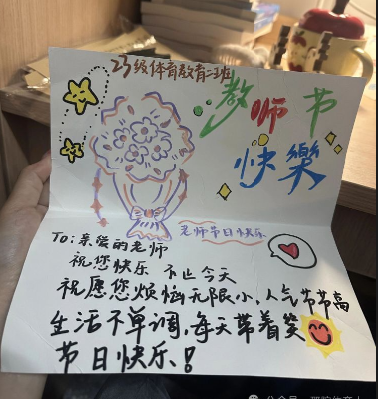 23级体育教育二班
教师节
快樂
老师节日快乐
To: 亲爱的老师
祝您快乐 不止今天
祝愿您烦恼无限小,人气节节高
生活不单调,每天带着笑
节日快乐!